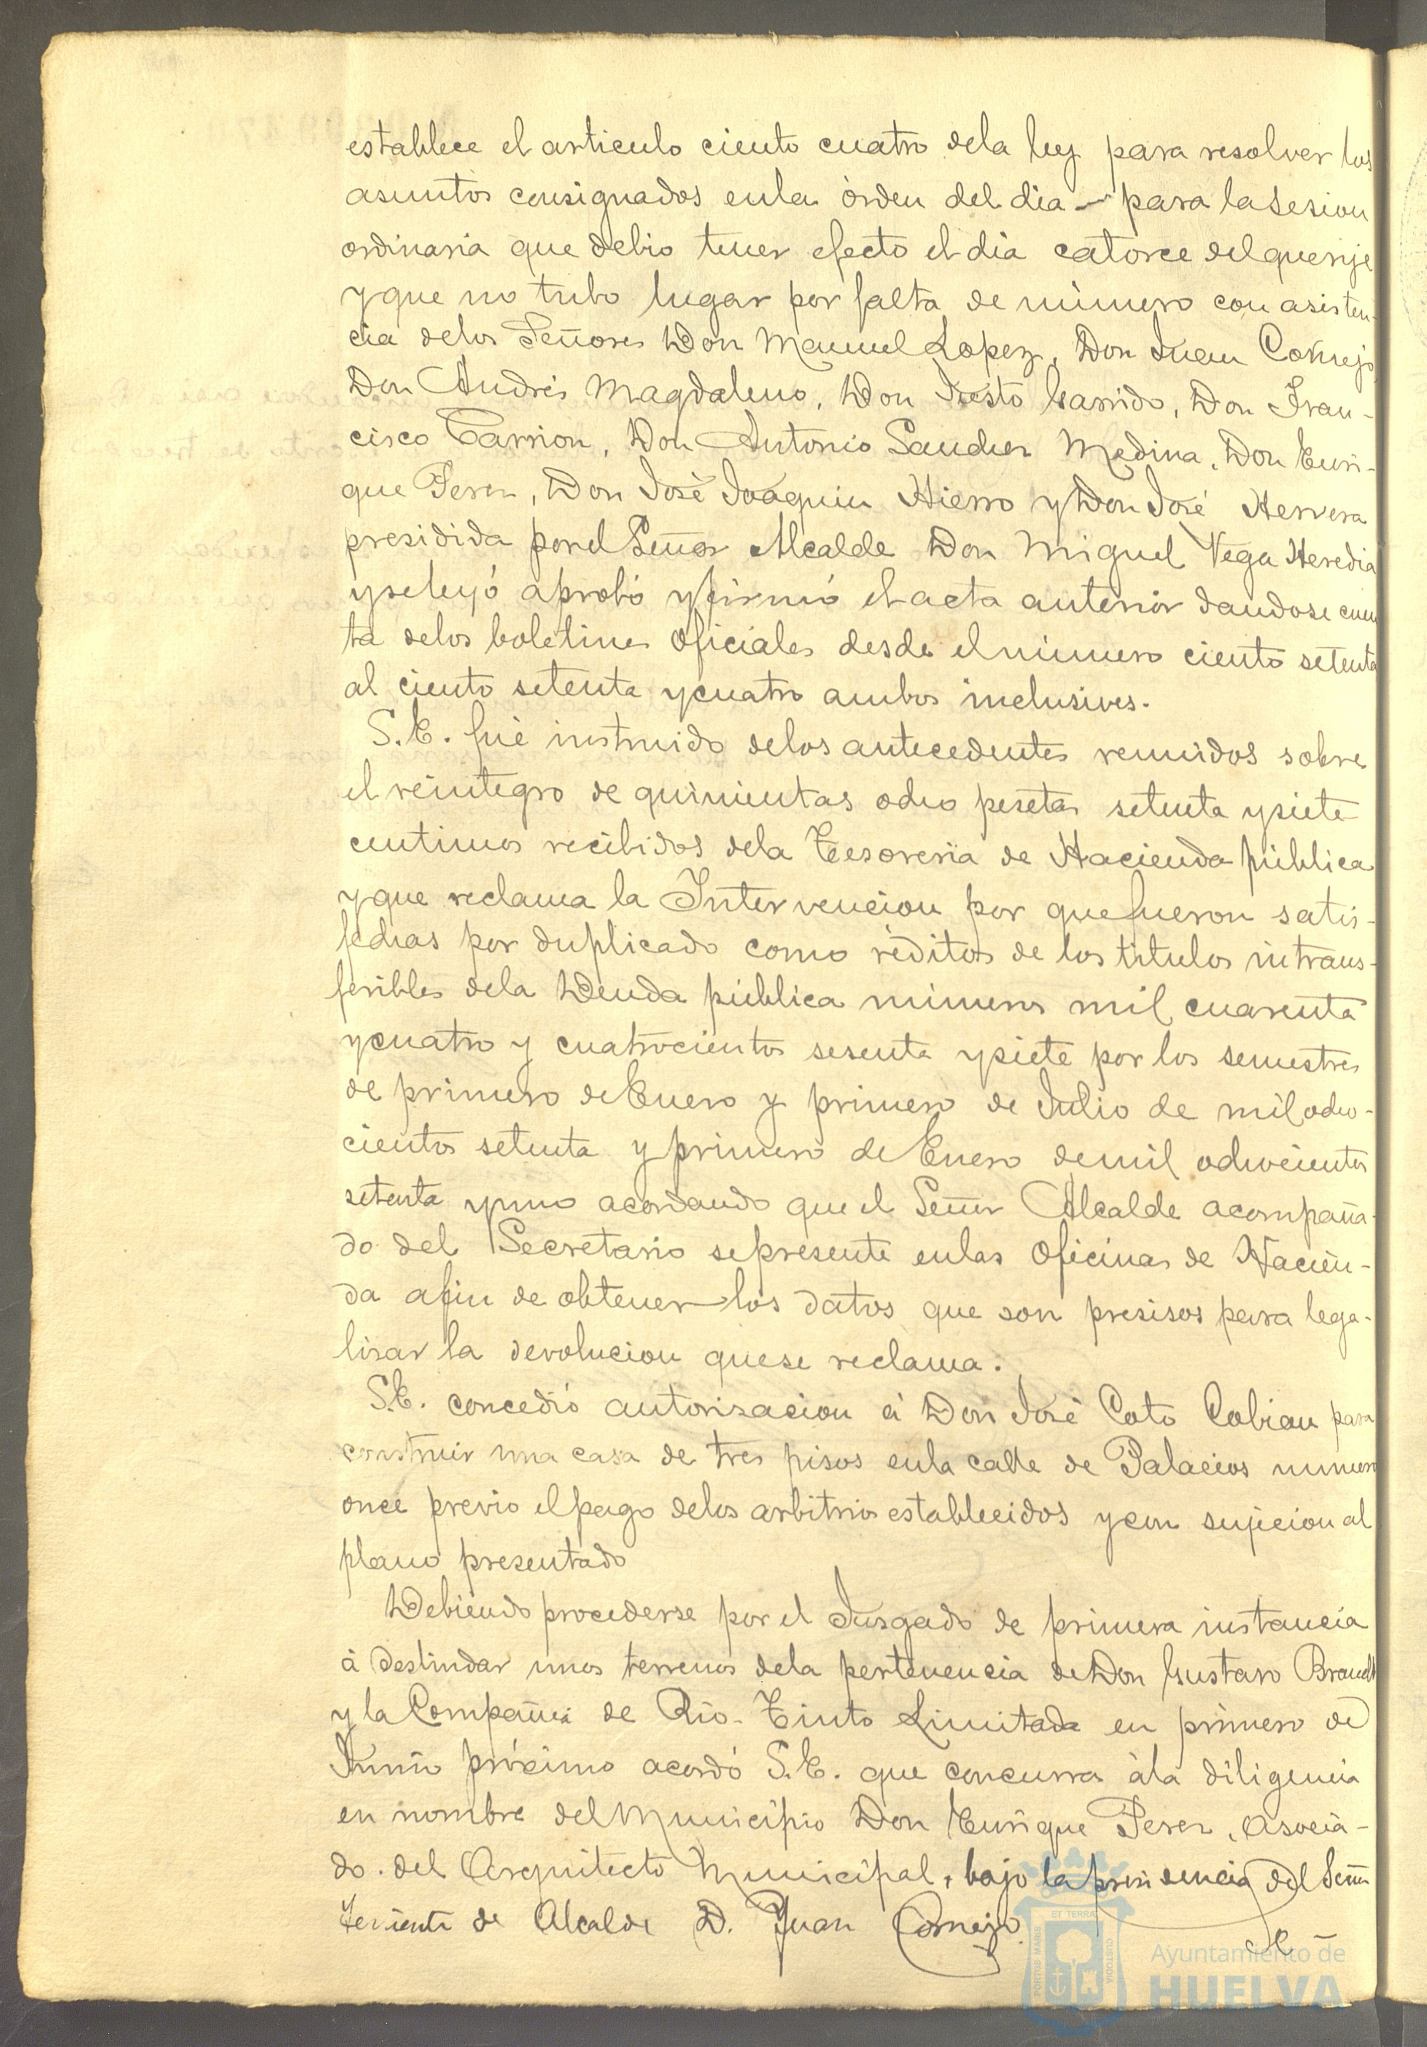 establece el articulo ciento cuatro dela ley para resolver los
asuntos consignados enla órden del dia para la sesion
ordinaria que debio tener efecto el dia catorce del que rije
y que no tubo lugar por falta de número con asisten-
cia delos Señores Don Manuel Lopez, Don Juan Cornejo,
Don Andrés Magdaleno, Don Justo Garrido, Don Fran-
cisco Carrion, Don Antonio Sanchez Medina, Don Enri-
que Perez, Don José Joaquin Hierro y Don José Herrera
presidida por el Señor Alcalde Don Miguel Vega Heredia
y se leyó aprobó y firmó el acta anterior dandose cuen
ta delos boletines oficiales desde el número ciento setenta
al ciento setenta y cuatro ambos inclusives.
S.E. fué instruido delos antecedentes reunidos sobre
el reintegro de quinientas ocho pesetas setenta y siete
centimos recibidos dela Tesoreria de Hacienda pública
y que reclama la Intervencion por que fueron satis-
fechas por duplicado como réditos de los titulos intrans-
feribles dela Deuda pública números mil cuarenta
y cuatro y cuatrocientos sesenta y siete por los semestres
de primero de Enero y primero de Julio de mil ocho-
cientos setenta y primero de Enero de mil ochocientos
setenta y uno acordando que el Señor Alcalde acompaña-
do del Secretario se presente enlas Oficinas de Hacien-
da afin de obtener los datos que son presisos para lega-
lisar la devolucion que se reclama.
S.E. concedió autorisacion á Don José Coto Cobian para
construir una casa de tres pisos enla calle de Palacios número
once previo el pago delos arbitrios establecidos y con sujecion al
plano presentado
Debiendo procederse por el Jusgado de primera instancia
á deslindar unos terrenos dela pertenencia de Don Gustavo Brandt
y la Compañia de Rio-Tinto Limitada en primero de
Junio próximo acordó S.E. que concurra á la diligencia
en nombre del Municipio Don Enrique Perez, asocia-
do del Arquitecto Municipal, bajo la presidencia del Señor
Teniente de Alcalde D. Juan Cornejo
PORTUS MARIS ET TERRAE CUSTODIA
Ayuntamiento de
HUELVA